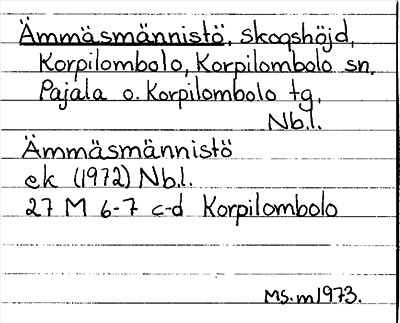 Ämmäsmännistö, skogshöjd,
Korpilombolo, Korpilombolo sn,
Pajala o. Korpilombolo tg,
Nb.l.
Ämmäsmännistö
ek (1972) Nb.l.
27 M 6-7 c-d Korpilombolo
Ms. m 1973.